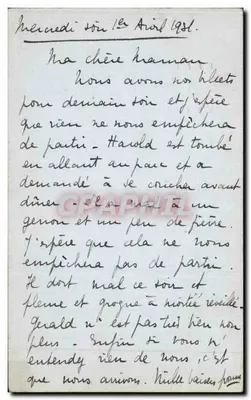 Mercredi soir 1er Avril 1931.
Ma chère Maman
Nous avons nos tickets
pour demain soir et j'espère
que rien ne nous empêchera
de partir - Harold est tombé
en allant au parc et a
demandé à se coucher avant
dîner - Il en a un à un
genou et un peu de fièvre.
J'espère que cela ne nous
empêchera pas de partir.
Il dort mal ce soir et
pleure et grogne à moitié réveillé -
Gerald n'est pas très bien non
plus - Enfin si vous n'
entendez rien de nous, c'est
que nous arrivons. Mille baisers